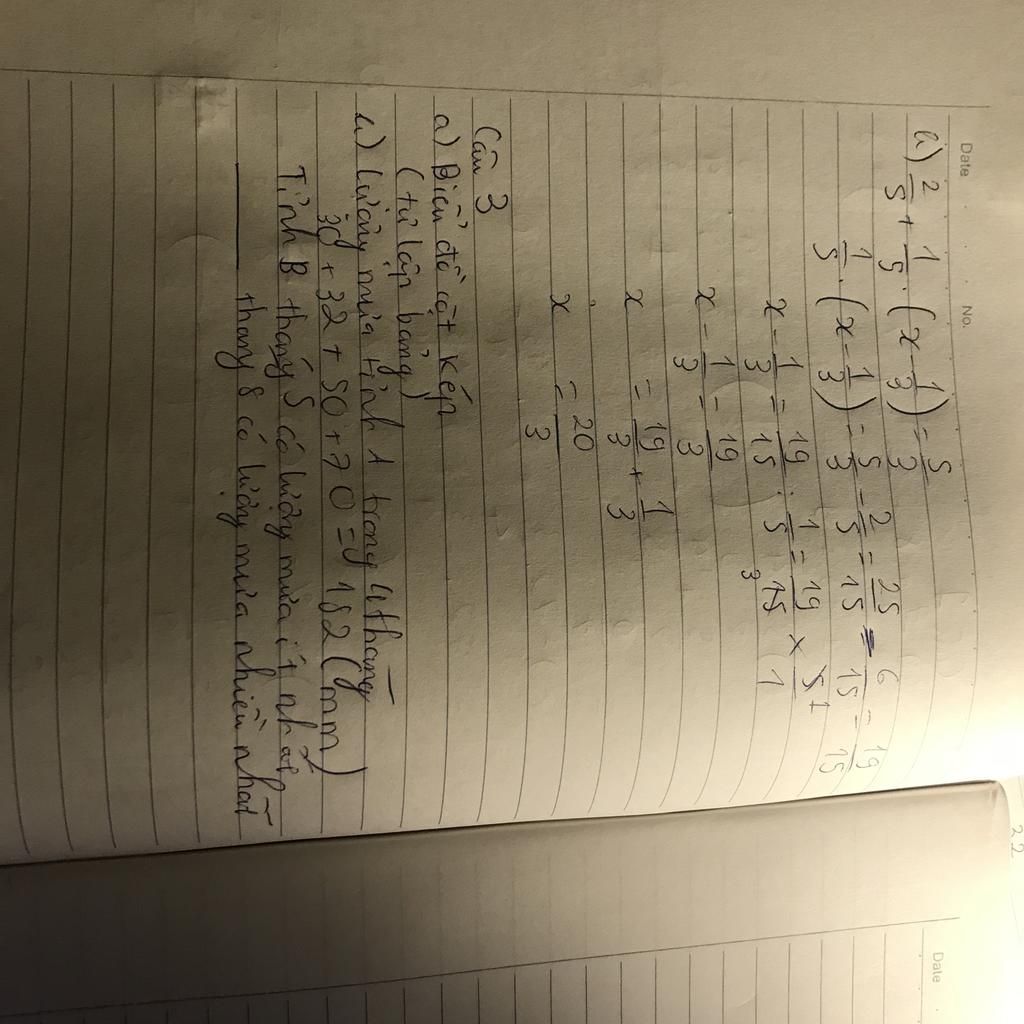 Date No.
b) 2/5 + 1/5 . (x - 1/3) = 5/3
1/5 . (x - 1/3) = 5/3 - 2/5 = 25/15 - 6/15 = 19/15
x - 1/3 = 19/15 : 1/5 = 19/15 3 × 5/1 1
x - 1/3 = 19/3
x = 19/3 + 1/3
x = 20/3
Câu 3
a) Biểu đồ cột kép
(tự lập bảng)
b) Lượng mưa tỉnh A trong 4 tháng
30 + 32 + 50 + 70 = 182 (mm)
Tỉnh B tháng 5 có lượng mưa ít nhất
tháng 8 có lượng mưa nhiều nhất
Date